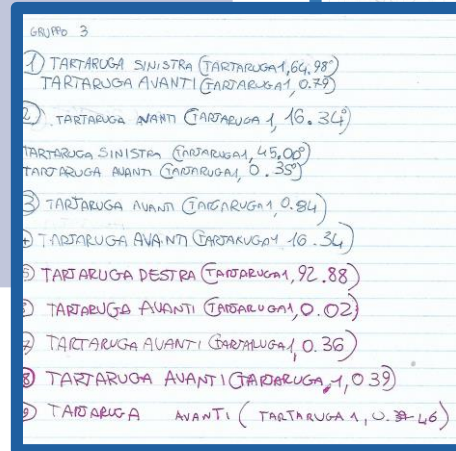 GRUPPO 3
① TARTARUGA SINISTRA (TARTARUGA1,64.98°)
TARTARUGA AVANTI (TARTARUGA1, 0.79)
②. TARTARUGA AVANTI (TARTARUGA 1, 16.34°)
TARTARUGA SINISTRA (TARTARUGA1, 45.00°)
TARTARUGA AVANTI (TARTARUGA1, 0.35°)
③ TARTARUGA AVANTI (TARTARUGA1, 0.84)
4 TARTARUGA AVANTI (TARTARUGA1 16.34)
⑤ TARTARUGA DESTRA (TARTARUGA1, 92.88)
6 TARTARUGA AVANTI (TARTARUGA1, 0.02)
7 TARTARUGA AVANTI (TARTARUGA1, 0.36)
⑧ TARTARUGA AVANTI (TARTARUGA,1, 0.39)
9 TARTARUGA AVANTI ( TARTARUGA 1, 0.46)